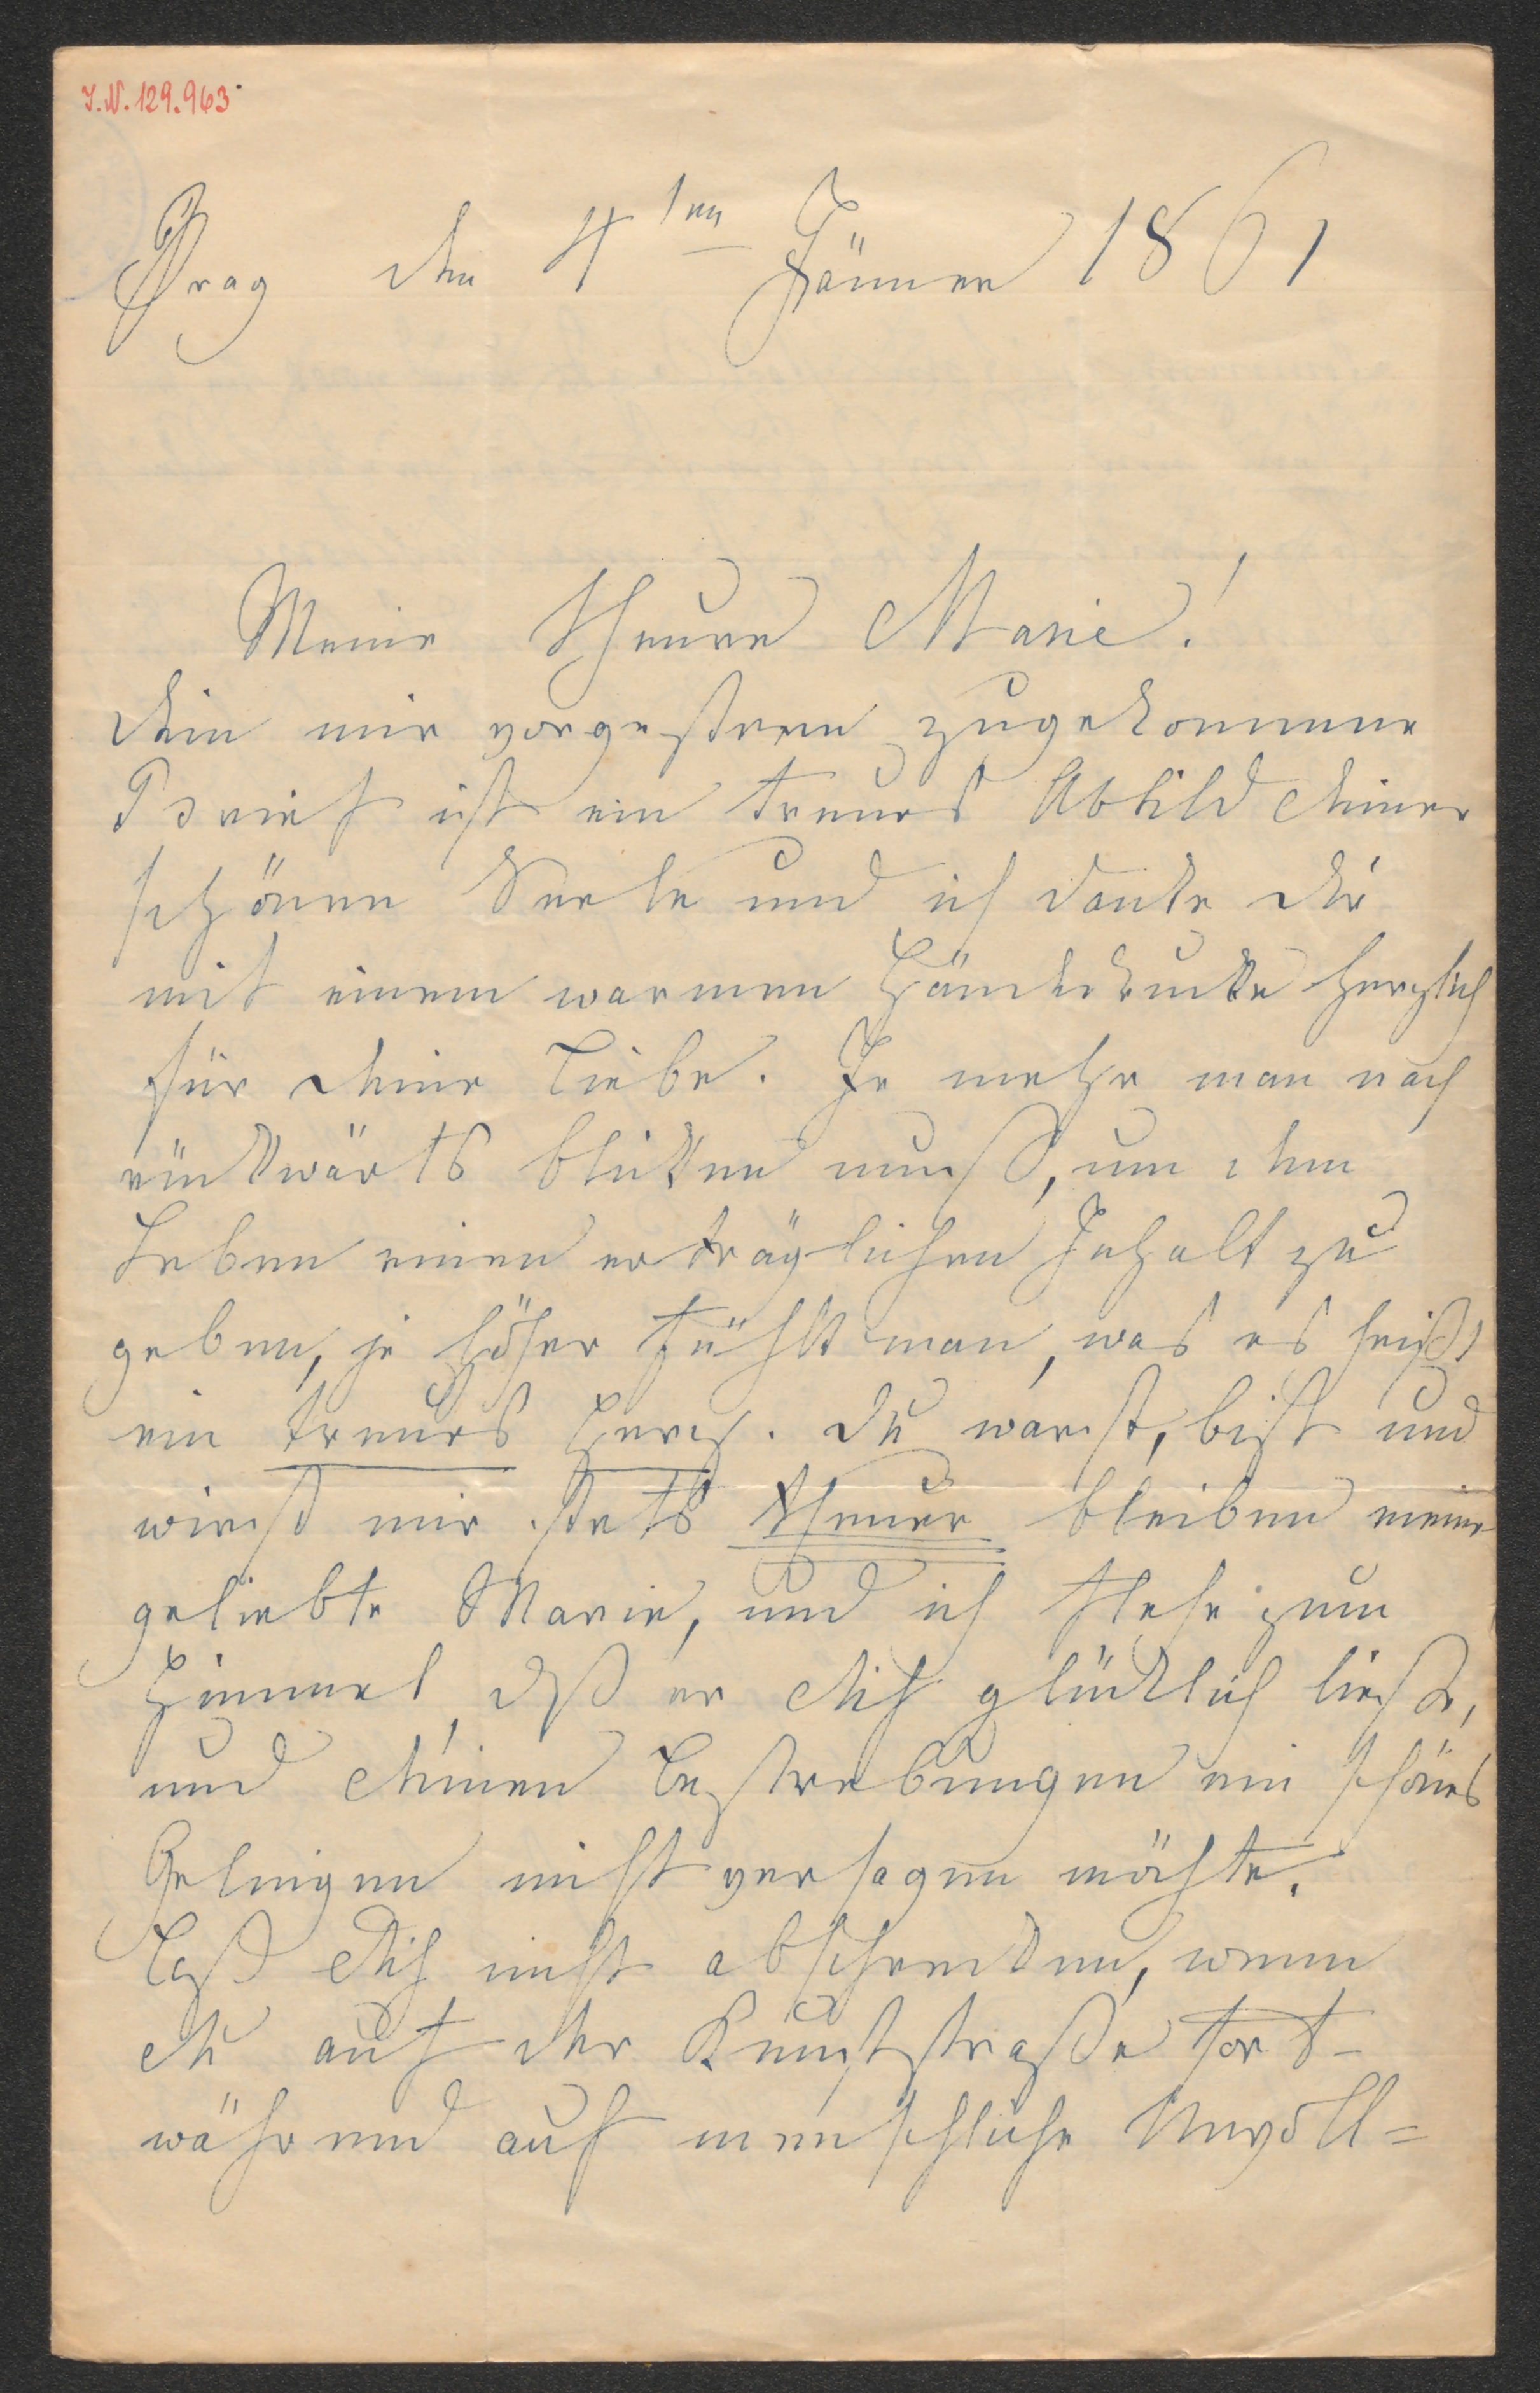 I.N. 129.963
Prag den 4ten Jänner 1861
Meine theure Marie!
Dein mir vorgestern zugekommene
Brief ist ein treues Abbild Deiner
schönen Seele und ich danke Dir
mit einem warmen Händedrucke herzlich
für Deine Liebe. Je mehr man nach
rückwärts blicken muß, um dem
Leben einen erträglichen Inhalt zu
geben, je höher fühlt man, was es heißt
ein treues Herz. Du warst, bist und
wirst mir stets theuer bleiben meine
geliebte Marie, und ich flehe zum
Himmel, dß er Dich glücklich ließe,
und Deinen Bestrebungen ein schönes
Gelingen nicht versagen möchte.
Laß Dich nicht abschrecken, wenn
Du auf der Kunststraße fort-
während auf menschliche Unvoll=